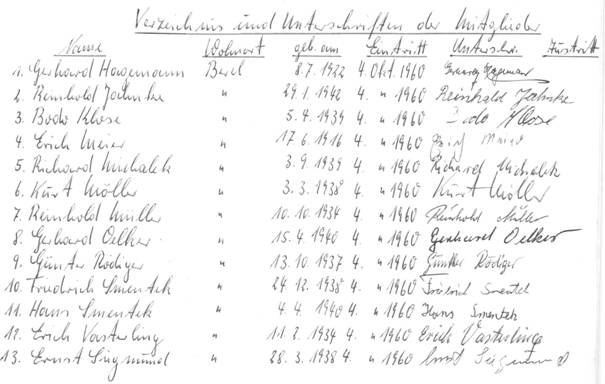 Verzeichnis und Unterschriften der Mitglieder
Name Wohnort geb. am Eintritt Unterschr. Austritt
1. Gerhard Hagemann Berel 8.7.1922 4. Okt. 1960 Hagemann
2. Reinhold Jahnke " 29.1.1942 4. " 1960 Reinhold Jahnke
3. Bodo Klose " 5.4.1939 4. " 1960 Bodo Klose
4. Erich Meier " 17.6.1916 4. " 1960 Erich Meier
5. Richard Michalek " 3.9.1939 4. " 1960 Richard Michalek
6. Kurt Möller " 3.3.1938 4. " 1960 Kurt Möller
7. Reinhold Müller " 10.10.1934 4. " 1960 Reinhold Müller
8. Gerhard Oelker " 15.4.1940 4. " 1960 Gerhard Oelker
9. Günter Rödiger " 13.10.1937 4. " 1960 Günther Rödiger
10. Friedrich Smentek " 24.12.1938 4. " 1960 Friedrich Smentek
11. Hans Smentek " 4.4.1940 4. " 1960 Hans Smentek
12. Erich Vasterling " 11.2.1934 4. " 1960 Erich Vasterling
13. Ernst Siegmund " 28.3.1938 4. " 1960 Ernst Siegmund